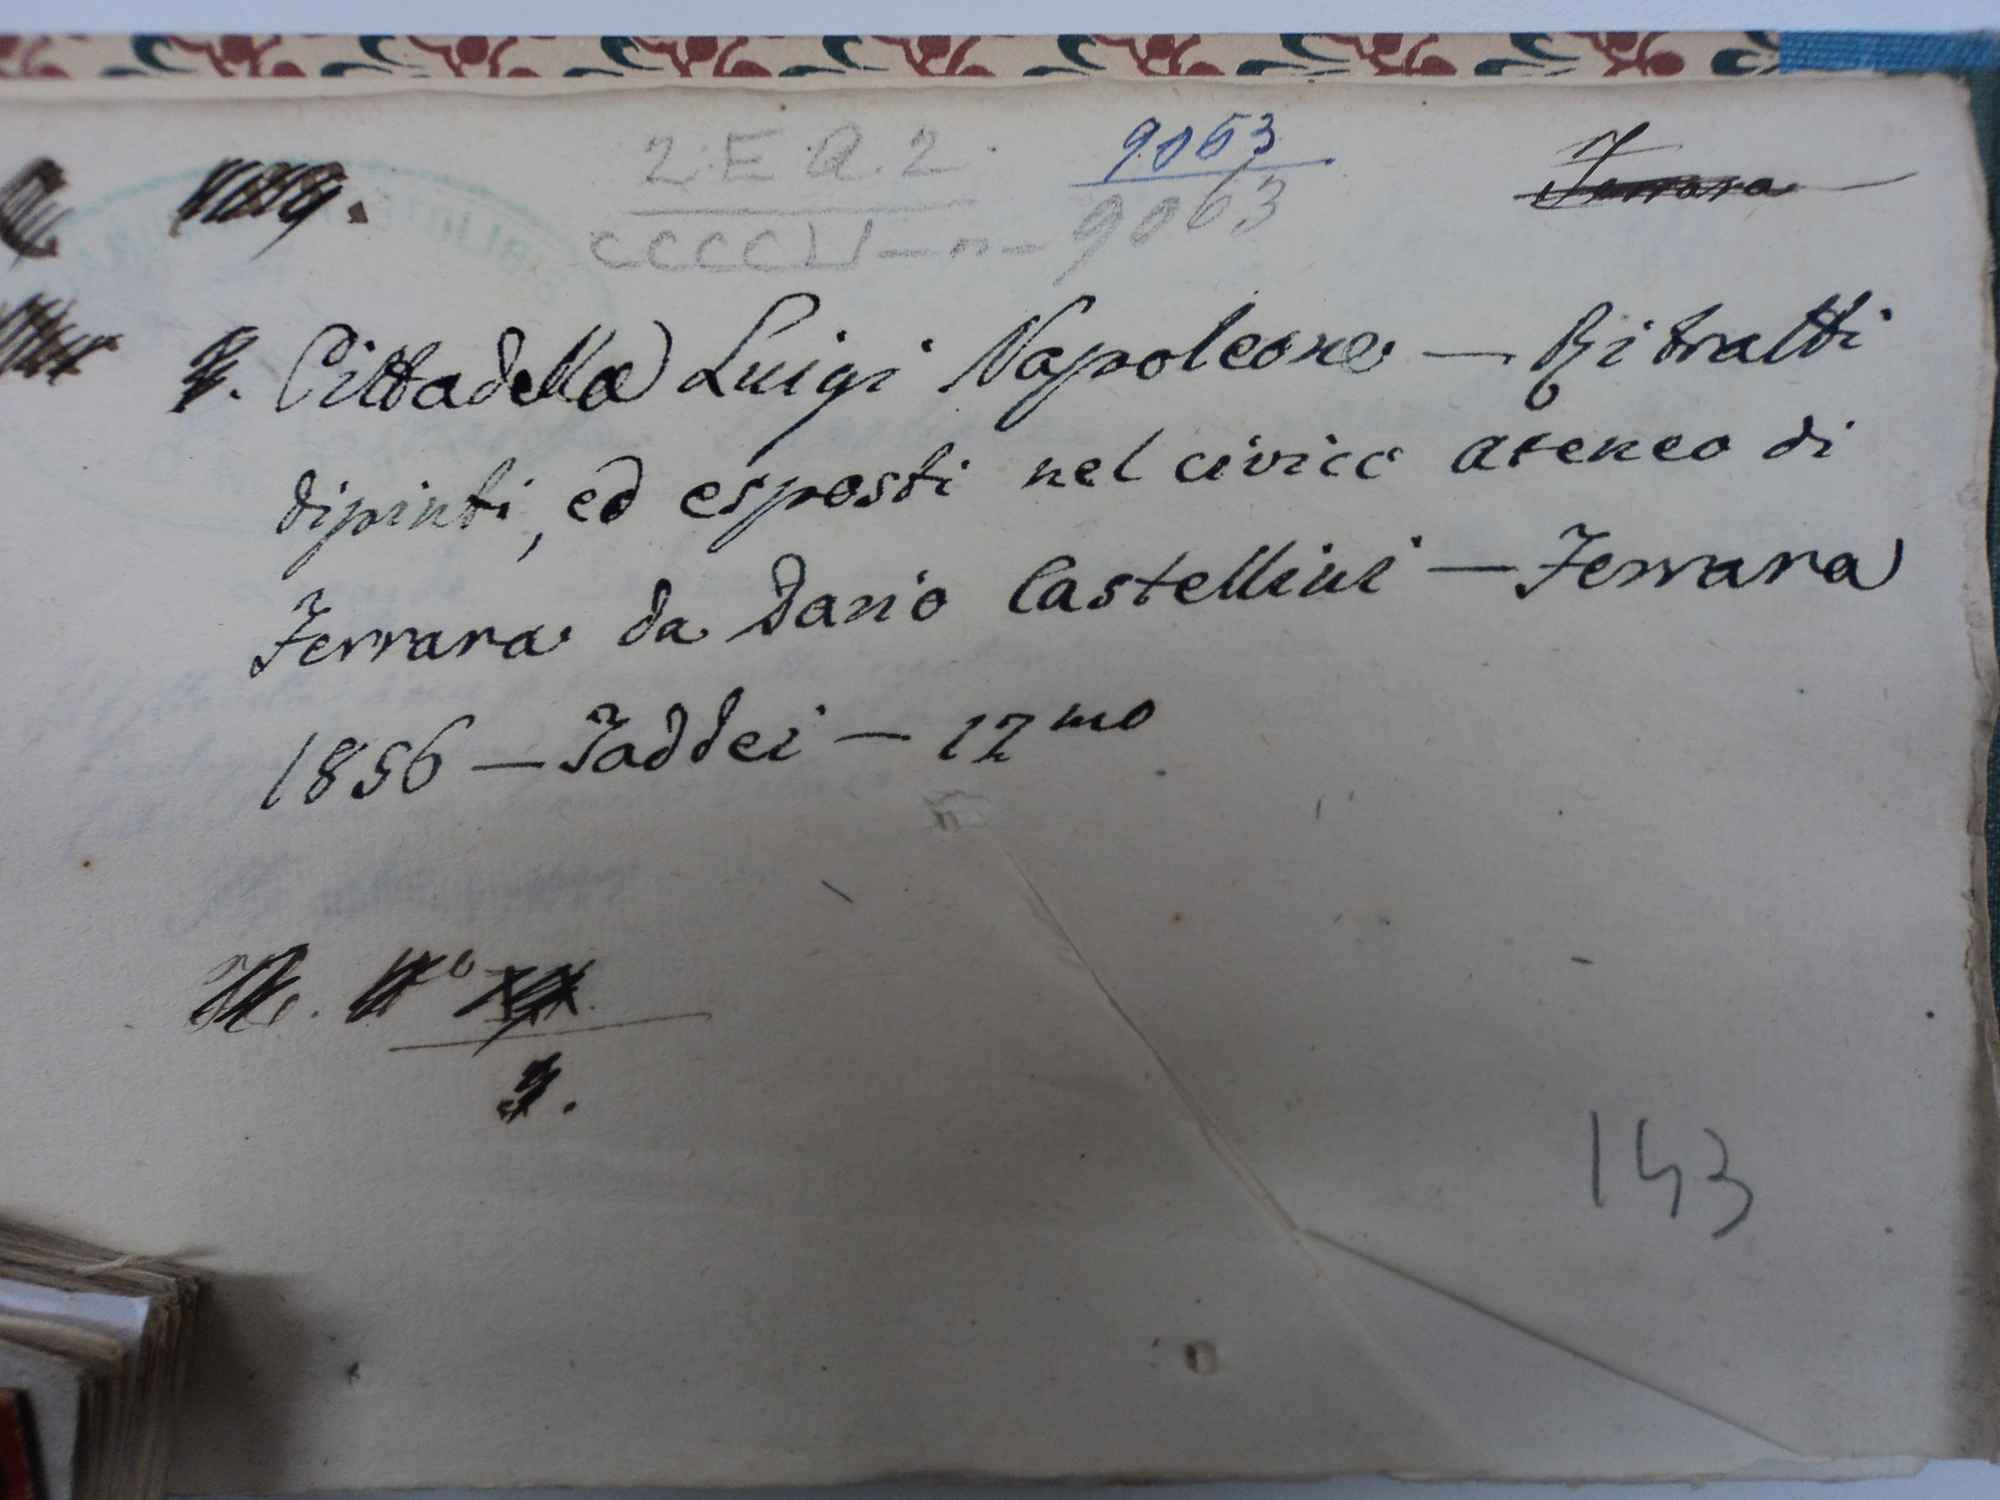 2. E. Q. 2.
9063
9063
Ferrara
Cittadella Luigi Napoleone — Ritratti
dipinti, ed esposti nel civico ateneo di
Ferrara da Dario Castellini — Ferrara
1856 — Taddei — 12mo
3.
143